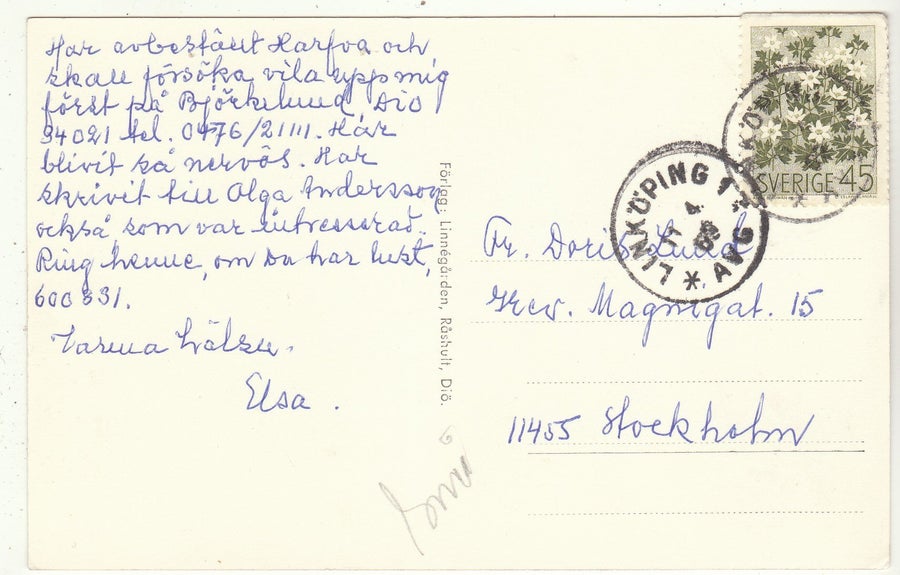 Har avbeställt Harfva och
skall försöka vila upp mig
först på Björkelund, Diö
34021 tel. 0476/21111. Har
blivit så nervös. Har
skrivit till Olga Andersson
också som var intresserad.
Ring henne, om Du har lust,
600331.
Varma hälsn.
Elsa.
Förlag: Linnégården, Råshult, Diö.
SVERIGE 45
LINKÖPING 1
4
69
AVG
Fr. Doris Lund
Grev. Magnigat. 15
11455 Stockholm